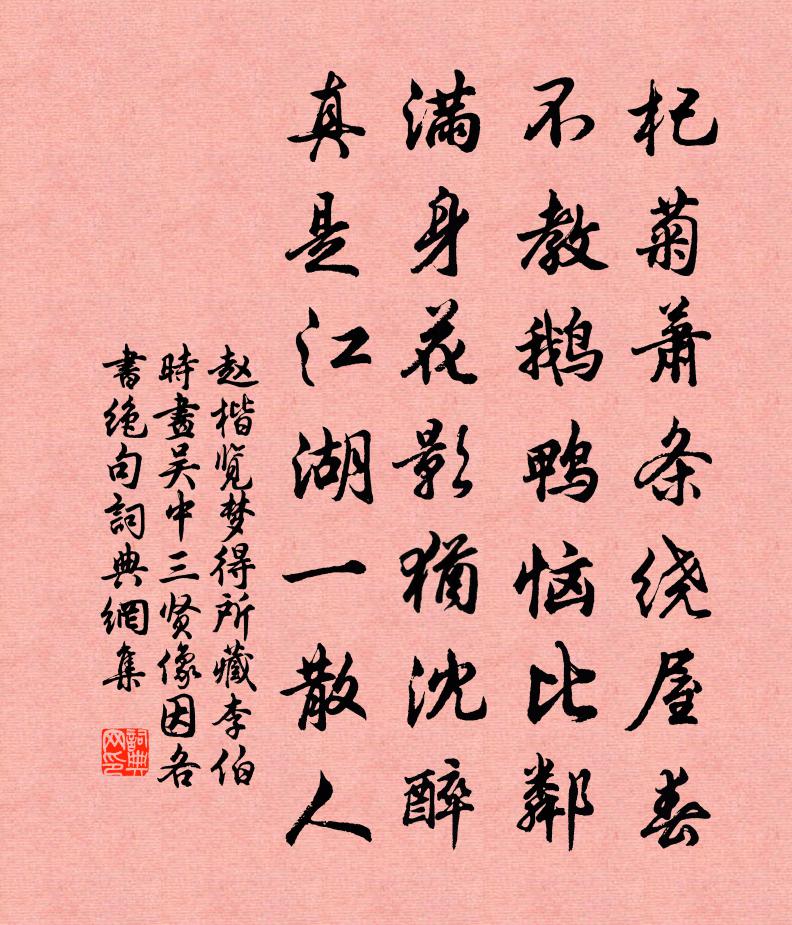 杞菊萧条绕屋春
不教鹅鸭恼比鄰
满身花影犹沈醉
真是江湖一散人
赵楷览梦得所藏李伯
時畫吴中三贤像因各
書绝句詞典網集
詞典网印